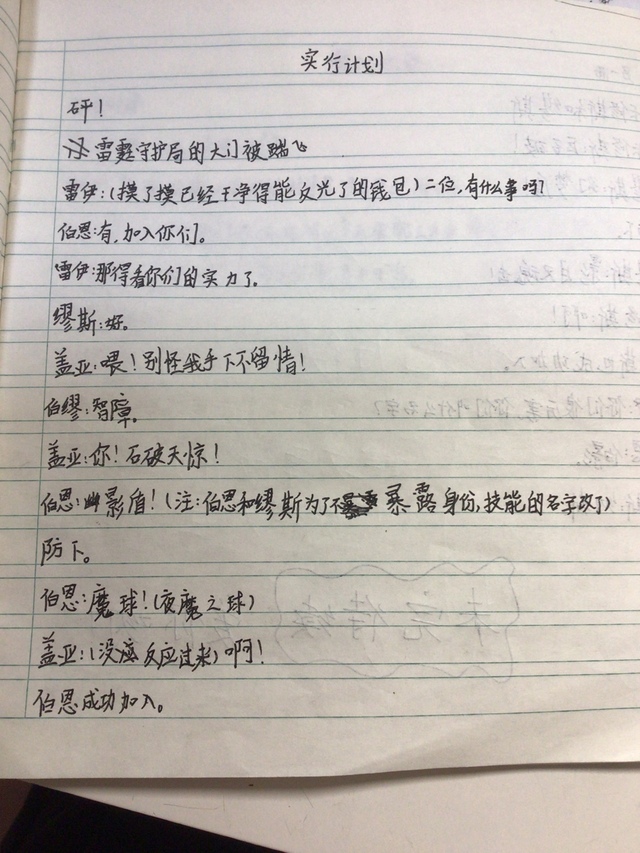 实行计划
砰！
雷霆守护局的大门被踹飞
雷伊：（摸了摸已经干净得能反光了的钱包）二位，有什么事吗？
伯恩：有，加入你们。
雷伊：那得看你们的实力了。
缪斯：好。
盖亚：喂！别怪我手下不留情！
伯缪：智障。
盖亚：你！石破天惊！
伯恩：幽影盾！（注：伯恩和缪斯为了不暴露身份，技能的名字改了）
防下。
伯恩：魔球！（夜魔之球）
盖亚：（没反应过来）啊！
伯恩成功加入。
未完待续